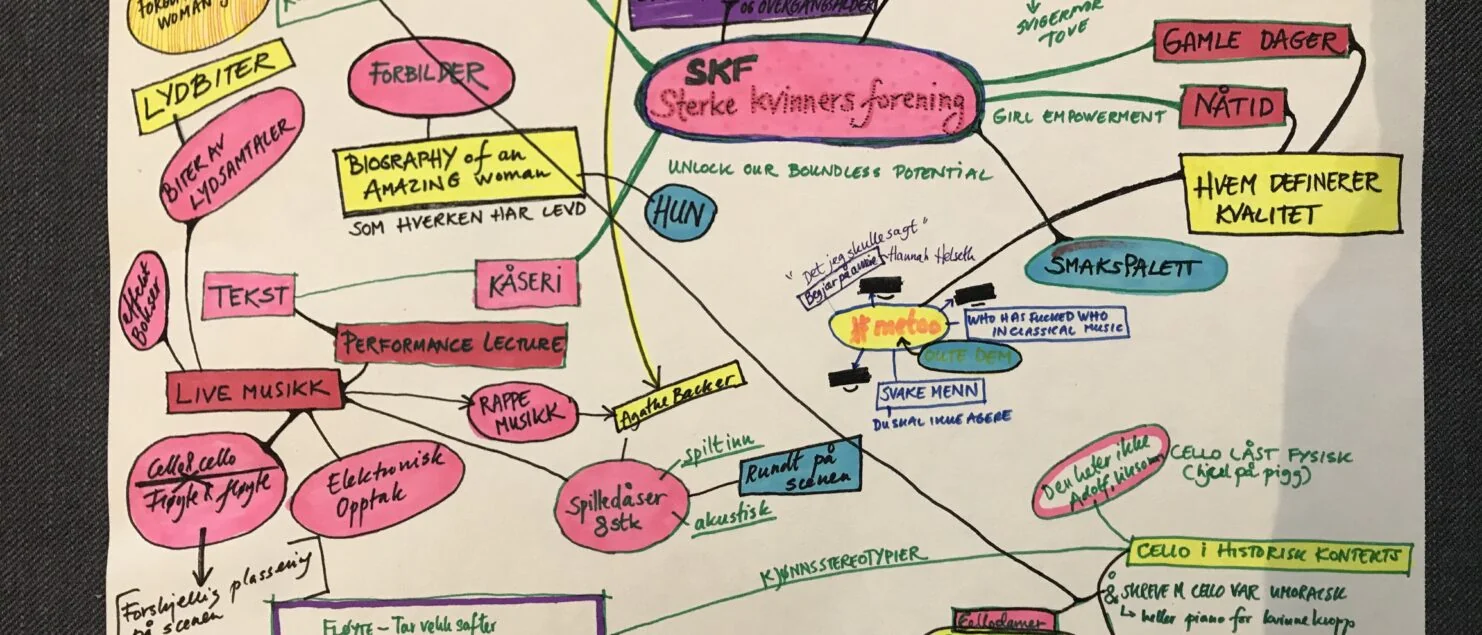 WOMAN
OG OVERGANGSALDER
SVIGERMOR
TOVE
LYDBITER
FORBILDER
SKF
Sterke kvinners forening
GAMLE DAGER
NÅTID
GIRL EMPOWERMENT
BITER AV
LYDSAMTALER
BIOGRAPHY of an
AMAZING woman
SOM HVERKEN HAR LEVD
HUN
UNLOCK OUR BOUNDLESS POTENTIAL
HVEM DEFINERER
KVALITET
SMAKSPALETT
"Det jeg skulle sagt"
Hannah Helseth
TEKST
KÅSERI
effekt
Bokser
PERFORMANCE LECTURE
#metoo
WHO HAS FUCKED WHO
IN CLASSICAL MUSIC
OUTE DEM
SVAKE MENN
DU SKAL IKKE AGERE
LIVE MUSIKK
RAPPE
MUSIKK
Agathe Backer
Cello & cello
Fløyte & fløyte
Elektronisk
Opptak
Spilledåser
8 stk
spilt inn
akustisk
Rundt på
scenen
Den heter ikke
CELLO LÅST FYSISK
(hjul på pigg)
CELLO I HISTORISK KONTEKTS
& SKREVE M CELLO VAR UMORALSK
↳ heller piano for kvinnekropp
KJØNNSSTEREOTYPIER
Forskjellig plassering
på scenen
FLØYTE - Tar vekk safter
Cellodamer